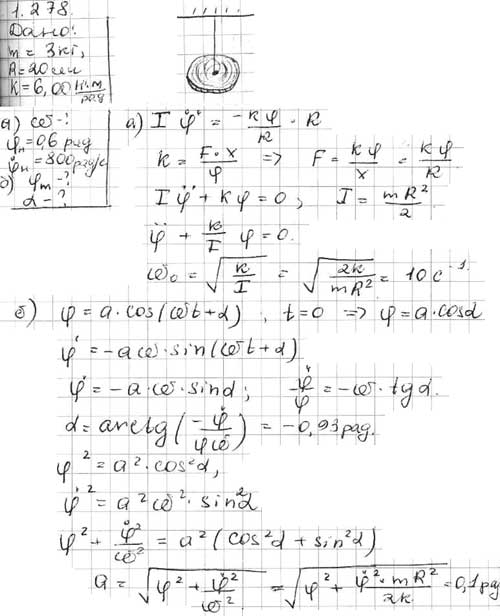 1.278.
Дано:
m = 3кг,
R = 20см
K = 6,00 Н·м/рад
а) ω - ?
φн = 0,6 рад
φ̇н = 800 рад/с
б) φm - ?
α - ?
а) I φ̈ = - kφ/R · R
k = F·x/φ => F = kφ/x = kφ/R
I φ̈ + kφ = 0; I = mR²/2
φ̈ + k/I φ = 0.
ω₀ = √(k/I) = √(2k/mR²) = 10 с⁻¹.
б) φ = a·cos(ωt+α), t=0 => φ = a·cosα
φ̇ = -aω·sin(ωt+α)
φ̇ = -a·ω·sinα; φ̇/φ = -ω·tgα.
α = arctg(-φ̇/φω) = -0,93 рад.
φ² = a²·cos²α,
φ̇² = a²ω²·sin²α
φ² + φ̇²/ω² = a²(cos²α + sin²α)
a = √(φ² + φ̇²/ω²) = √(φ² + φ̇²·mR²/2k) = 0,1 рад